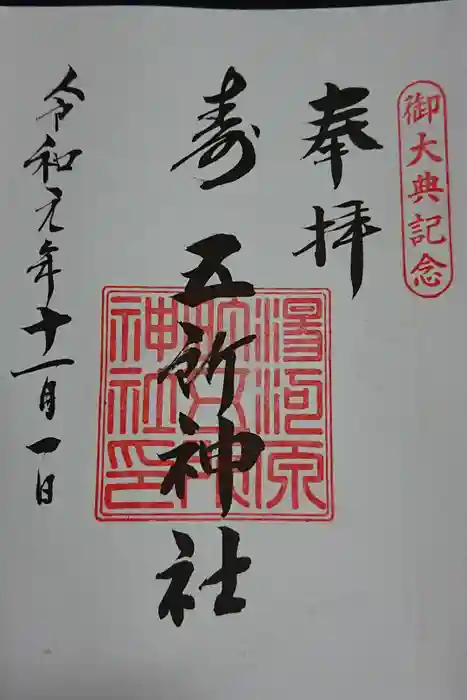 御大典記念
奉拝
寿 五所神社
湯河原
五所
神社印
令和元年十一月一日